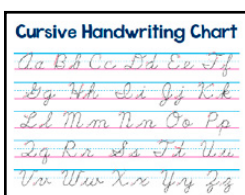 Cursive Handwriting Chart
Aa Bb Cc Dd Ee Ff
Gg Hh Ii Jj Kk
Ll Mm Nn Oo Pp
Qq Rr Ss Tt Uu
Vv Ww Xx Yy Zz